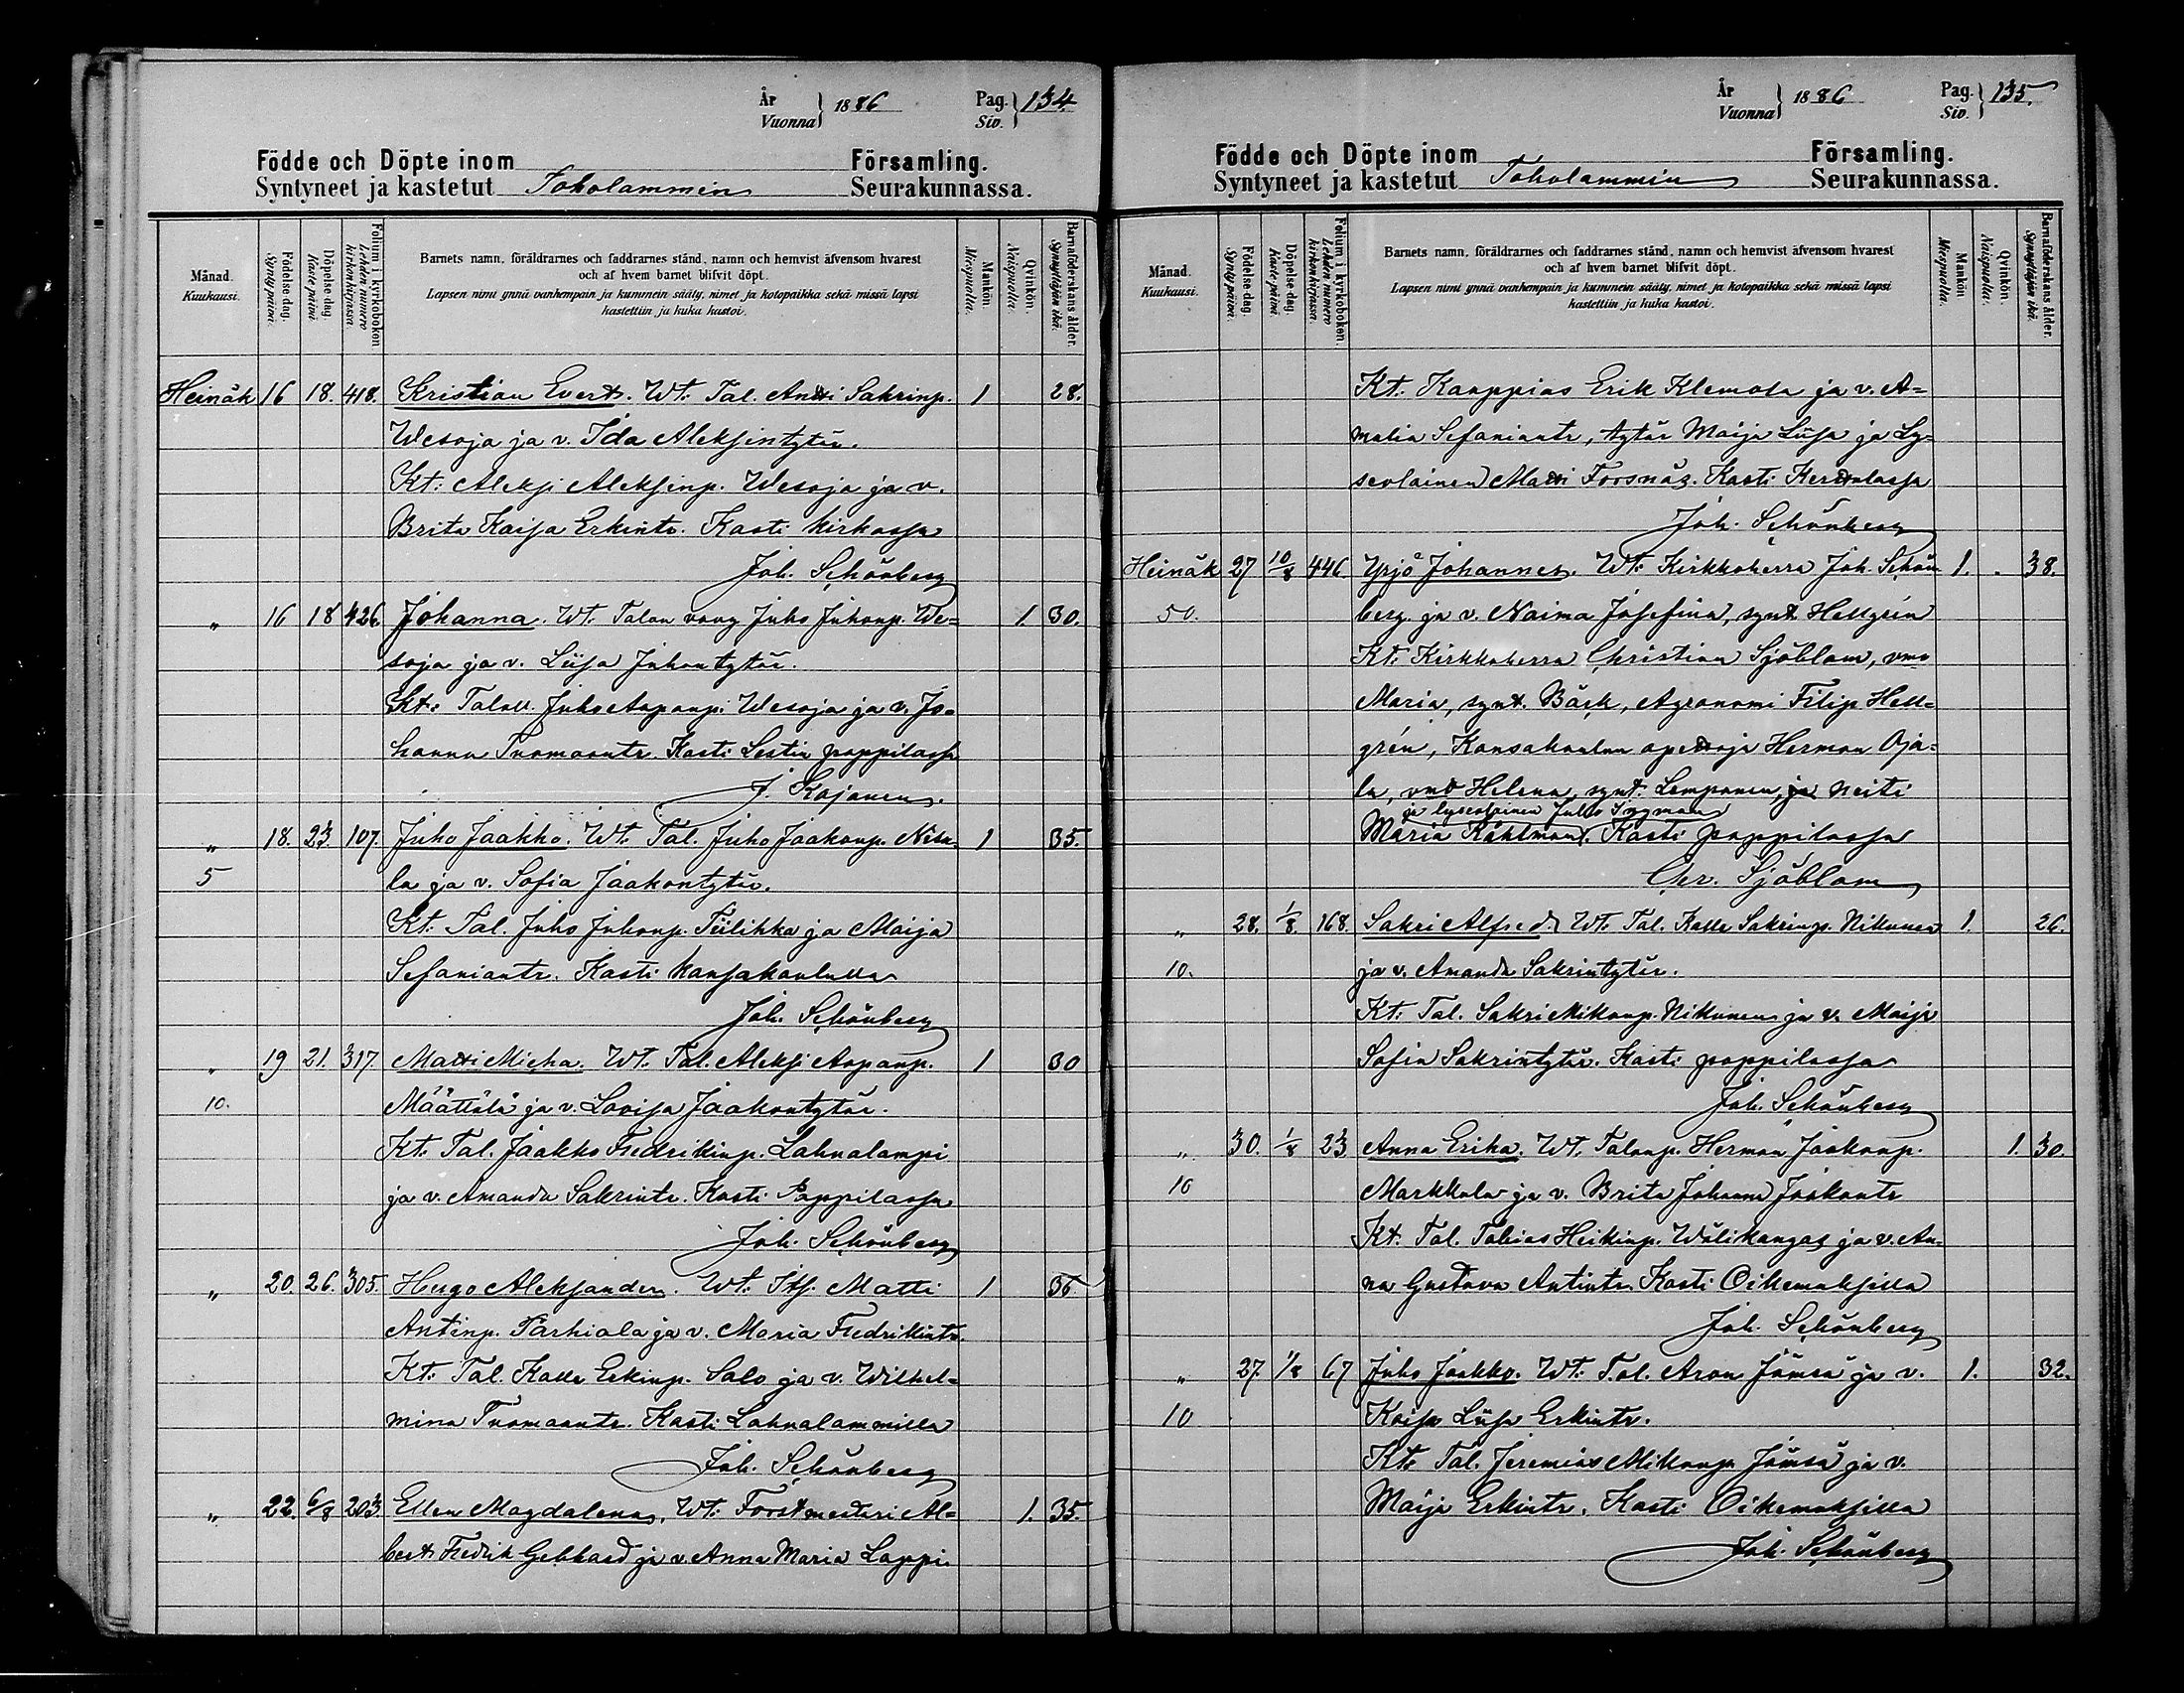 År
Vuonna } 1886 Pag.
Siv. } 134.
Födde och Döpte inom Församling.
Syntyneet ja kastetut Toholammin Seurakunnassa.
Månad. Kuukausi. Födelse-dag. Synty päivä. Döpelse-dag. Kaste päivä. Folium i kyrkoboken Lehden numero kirkonkirjassa. Barnets namn, föräldrarnes och faddrarnes stånd, namn och hemvist äfvensom hvarest
och af hvem barnet blifvit döpt.
Lapsen nimi ynnä vanhempain ja kummein sääty, nimet ja kotopaikka sekä missä lapsi
kastettiin ja kuka kastoi. Mankön. Miespuolia. Qvinkön. Naispuolia. Barnaföderskans ålder. Synnyttäjän ikä.
Heinäk 16 18. 418. Kristian Evert. Wt. Tal. Antti Sakrinp. 1 28.
Wesoja ja v. Ida Aleksintytär.
Kt: Aleksi Aleksinp. Wesoja ja v.
Brita Kaisa Erkintr. Kasti kirkossa
Joh. Schönberg
" 16 18 426. Johanna. Wt. Talon vouv Juho Juhonp. We=
soja ja v. Liisa Juhontytär. 1. 30.
Kt: Taloll. Juho Aapanp. Wesoja ja v. Jo=
hanna Tuomaantr. Kasti Lestin pappilassa
J. Kajanen.
" 18. 23. 107. Juho Jaakko. Wt. Tal. Juho Jaakonp. Nisu= 1 35.
5 la ja v. Sofia Jaakontytär.
Kt: Tal. Juho Juhonp. Tiilikka ja Maija
Sefaniantr. Kasti kansakoululla
Joh. Schönberg
" 19 21. 317. Matti Micha. Wt. Tal. Aleksi Aapanp. 1 30
10. Määttälä ja v. Lovisa Jaakontytär.
Kt. Tal. Jaakko Fredrikinp. Lahnalampi
ja v. Amanda Sakrintr. Kasti Pappilassa
Joh. Schönberg
" 20. 26. 305. Hugo Aleksander. Wt: Its. Matti 1 36
Antinp. Parhiala ja v. Maria Fredrikintr.
Kt: Tal. Kalle Erkinp. Salo ja v. Wilhel=
mina Tuomaantr. Kasti Lahnalammilla
Joh. Schönberg
" 22. 6/8 203. Ellen Magdalena, Wt: Forstmestari Al= 1. 35.
bert Fredrik Gebhard ja v. Anna Maria Lappi.
År
Vuonna } 1886 Pag.
Siv. } 135.
Födde och Döpte inom Församling.
Syntyneet ja kastetut Toholammin Seurakunnassa.
Månad. Kuukausi. Födelse-dag. Synty päivä. Döpelse-dag. Kaste päivä. Folium i kyrkoboken Lehden numero kirkonkirjassa. Barnets namn, föräldrarnes och faddrarnes stånd, namn och hemvist äfvensom hvarest
och af hvem barnet blifvit döpt.
Lapsen nimi ynnä vanhempain ja kummein sääty, nimet ja kotopaikka sekä missä lapsi
kastettiin ja kuka kastoi. Mankön Miespuolia. Qvinkön. Naispuolia. Barnaföderskans ålder. Synnyttäjän ikä.
Kt: Kauppias Erik Klemola ja v. A=
malia Sefaniantr, tytär Maija Liisa ja Ly=
seolainen Matti Forsnäs. Kasti Kerttulassa
Joh. Schönberg
Heinäk 27 10/8 446. Yrjö Johannes. Wt: Kirkkoherra Joh. Schön= 1. 38.
50. berg ja v. Naima Josefina, synt. Hellgrén
Kt: Kirkkoherra Christian Sjöblom, vmo
Maria, synt. Bäck, Agronomi Filip Hell=
grén, Kansakoulun opettaja Herman Oja=
la, vmo Helena, synt. Lempanen, ja neiti
ja lyseolainen Juho Ingman
Maria Kåhlman. Kasti pappilassa
Chr. Sjöblom
" 28. 1/8 168. Sakri Alfred. Wt. Tal. Kalle Sakrinp. Nikunen 1. 26.
10. ja v. Amanda Sakrintytär.
Kt: Tal. Sakri Mikonp. Nikunen ja v. Maija
Sofia Sakrintytär. Kasti pappilassa
Joh. Schönberg
" 30. 1/8 23 Anna Erika. Wt. Talonp. Herman Jaakonp. 1. 30.
10 Markkula ja v. Brita Johanna Jaakontr
Kt. Tal. Tobias Heikinp. Wälikangas ja v. An=
na Gustava Antintr. Kasti Oikemuksilla
Joh. Schönberg
" 27. 1/8 67 Juho Jaakko. Wt: Tal. Aron Jämsä ja v. 1. 32.
10 Kaisa Liisa Erkintr.
Kt: Tal. Jeremias Mikonp. Jämsä ja v.
Maija Erkintr. Kasti Oikemuksilla
Joh. Schönberg